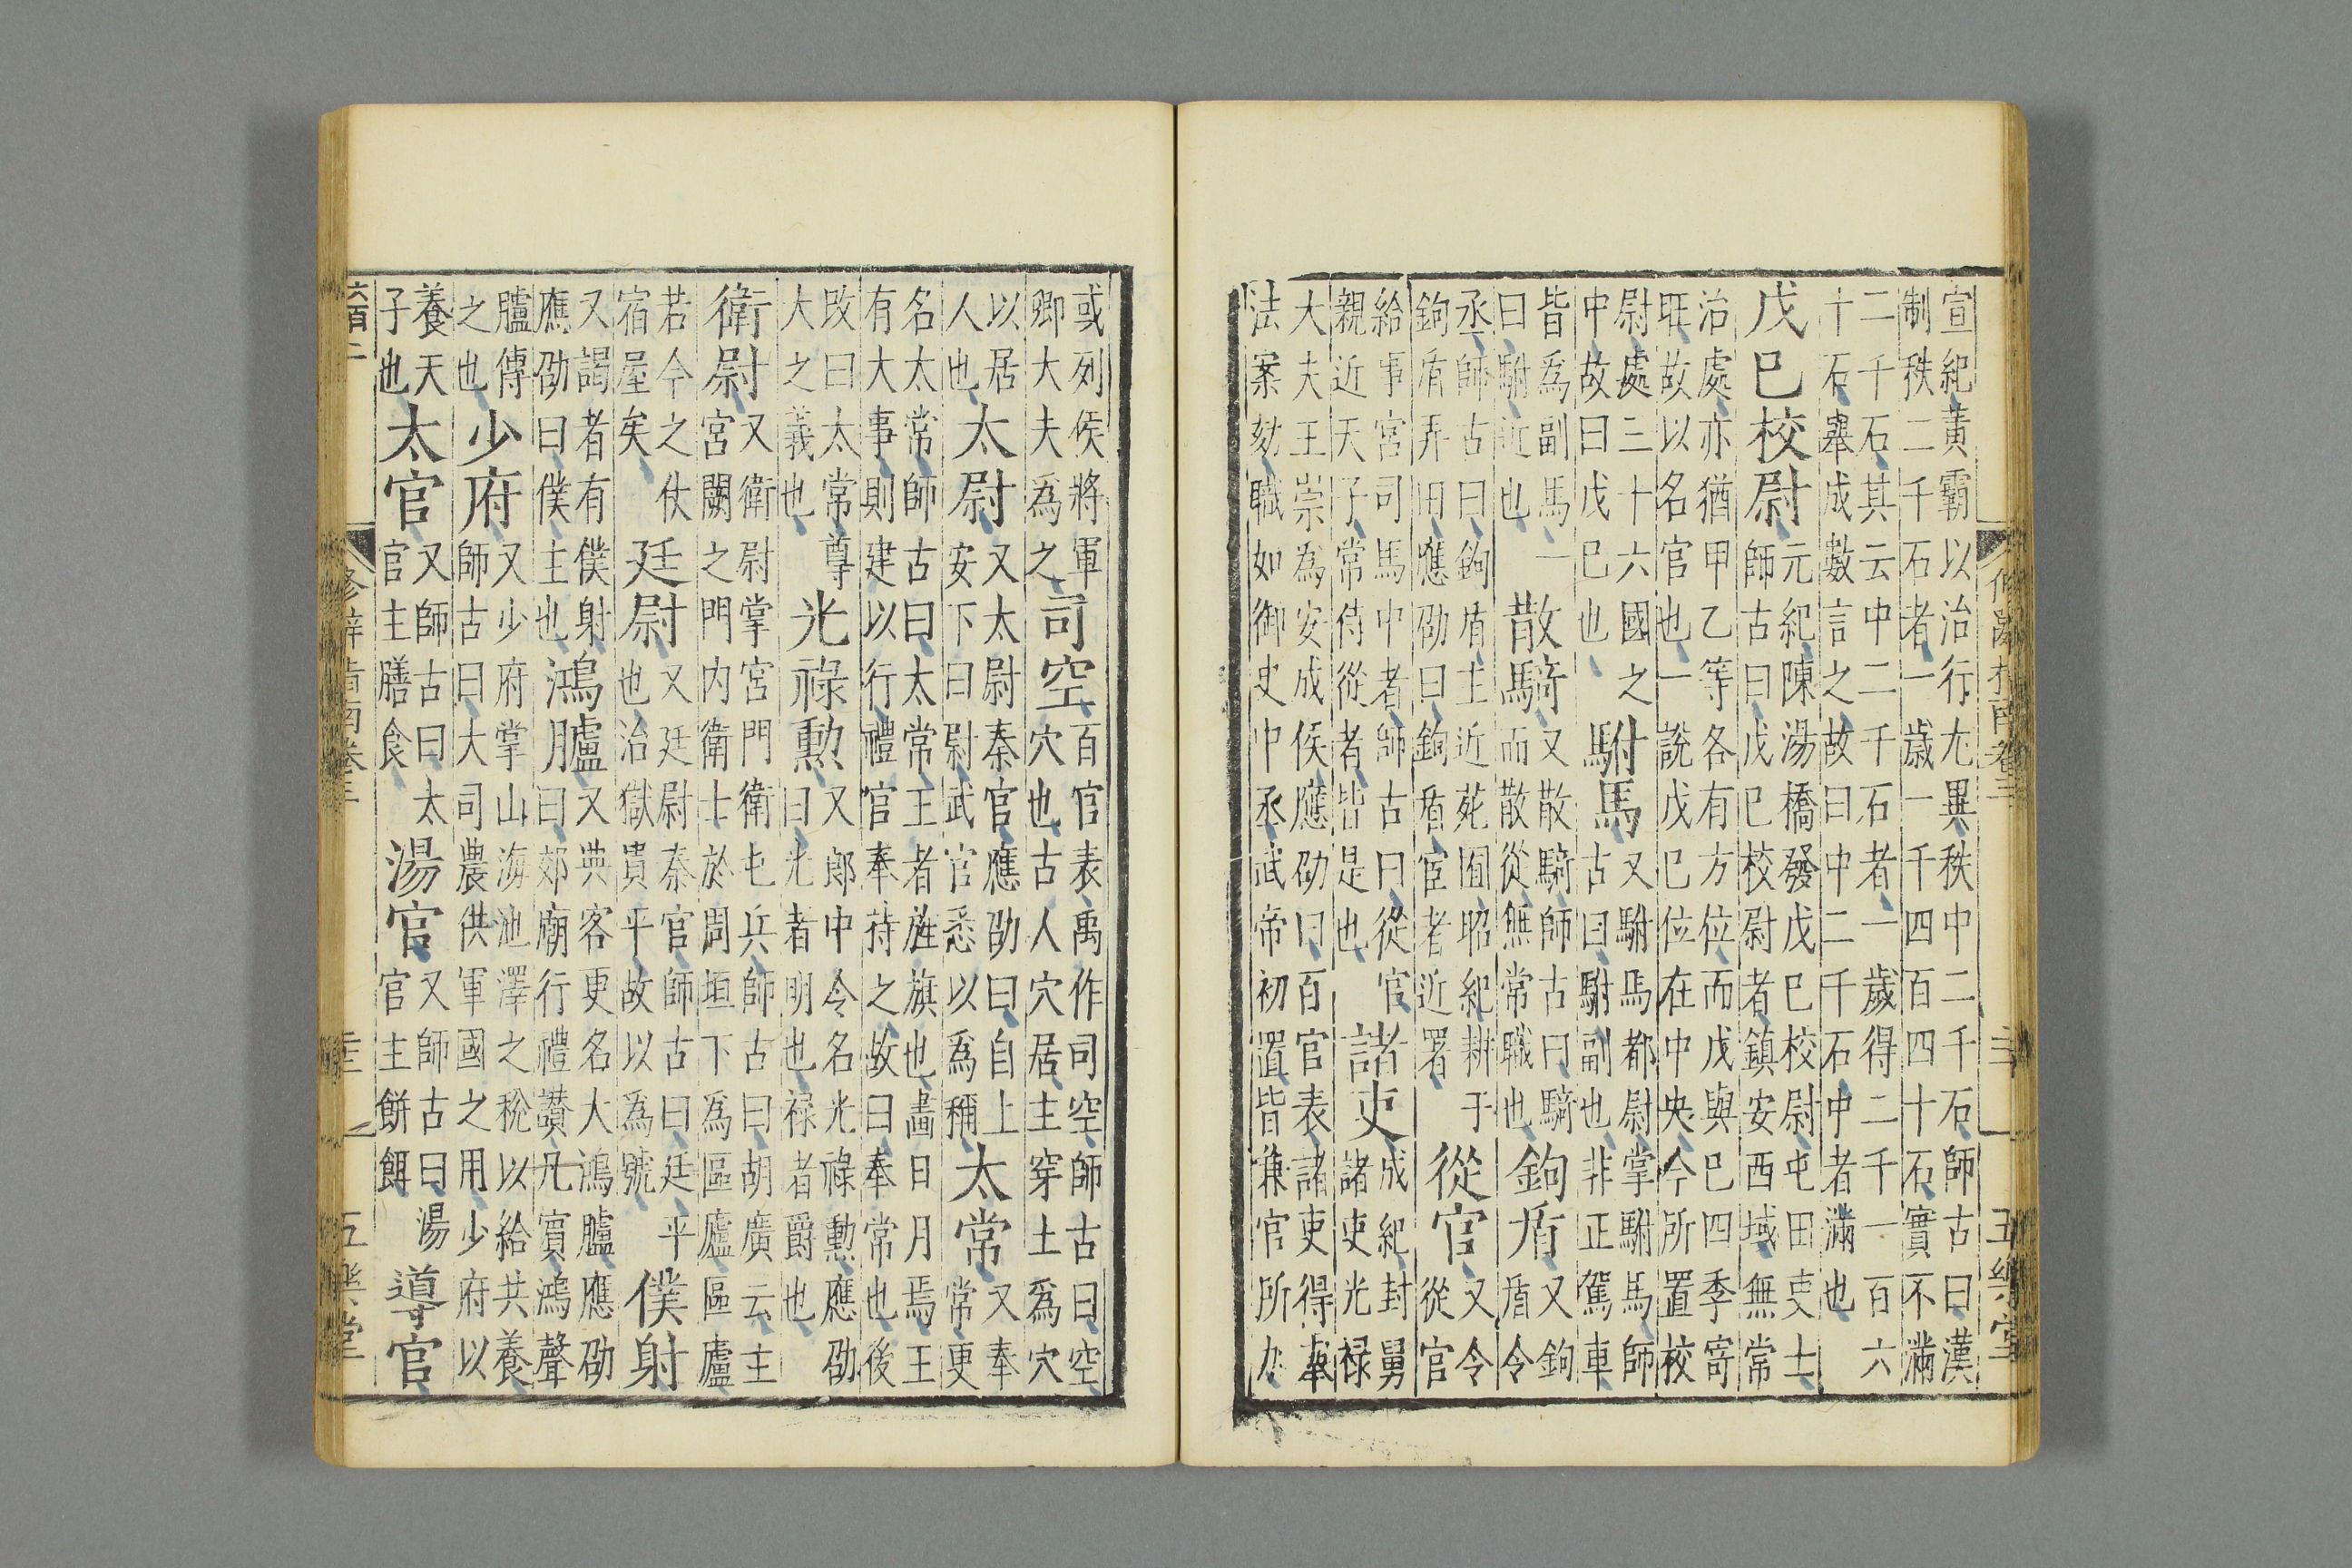 宣紀黃霸以治行尤異秩中二千石師古曰漢
制秩二千石者一歲一千四百四十石實不滿
二千石其云中二千石者一歲得二千一百六
十石舉成數言之故曰中二千石中者滿也
戊巳校尉
元紀陳湯橋發戊巳校尉屯田吏士
師古曰戊巳校尉者鎮安西域無常
治處亦猶甲乙等各有方位而戊與巳四季寄
故以名官也一說戊巳位在中央今所置校
尉處三十六國之
中故曰戊巳也
駙馬
又駙馬都尉掌駙馬師
古曰駙副也非正駕車
皆為副馬一
曰駙近也
散騎
又散騎師古曰騎
而散從無常職也
鉤盾
又鉤
盾令
丞師古曰鉤盾主近苑囿昭紀耕于
鉤盾弄田應劭曰鉤盾宦者近署
從官
又令
從官
給事宮司馬中者師古曰從官
親近天子常侍從者皆是也
諸吏
成紀封舅
諸吏光祿
大夫王崇為安成侯應劭曰百官表諸吏得舉
法案劾職如御史中丞武帝初置皆兼官所加
修辭指南卷三
三
五樂堂
或列侯將軍
卿大夫為之
司空
百官表禹作司空師古曰空
穴也古人穴居主穿土為穴
以居
人也
太尉
又太尉秦官應劭曰自上
安下曰尉武官悉以為稱
太常
又奉
常更
名太常師古曰太常王者旌旗也畫日月焉王
有大事則建以行禮官奉持之故曰奉常也後
改曰太常尊
大之義也
光祿勳
又郎中令名光祿勳應劭
曰光者明也祿者爵也
衛尉
又衛尉掌宮門衛屯兵師古曰胡廣云主
宮闕之門內衛士於周垣下為區廬區廬
若今之仗
宿屋矣
廷尉
又廷尉秦官師古曰廷平
也治獄貴平故以為號
僕射
又謁者有僕射應
劭曰僕主也
鴻臚
又典客更名大鴻臚應劭
曰郊廟行禮讚九賓鴻聲
臚傳
之也
少府
又少府掌山海池澤之稅以給共養
師古曰大司農供軍國之用少府以
養天
子也
太官
又師古曰太
官主膳食
湯官
又師古曰湯
官主餅餌
導官
六百二
修辭指南卷三
五樂堂